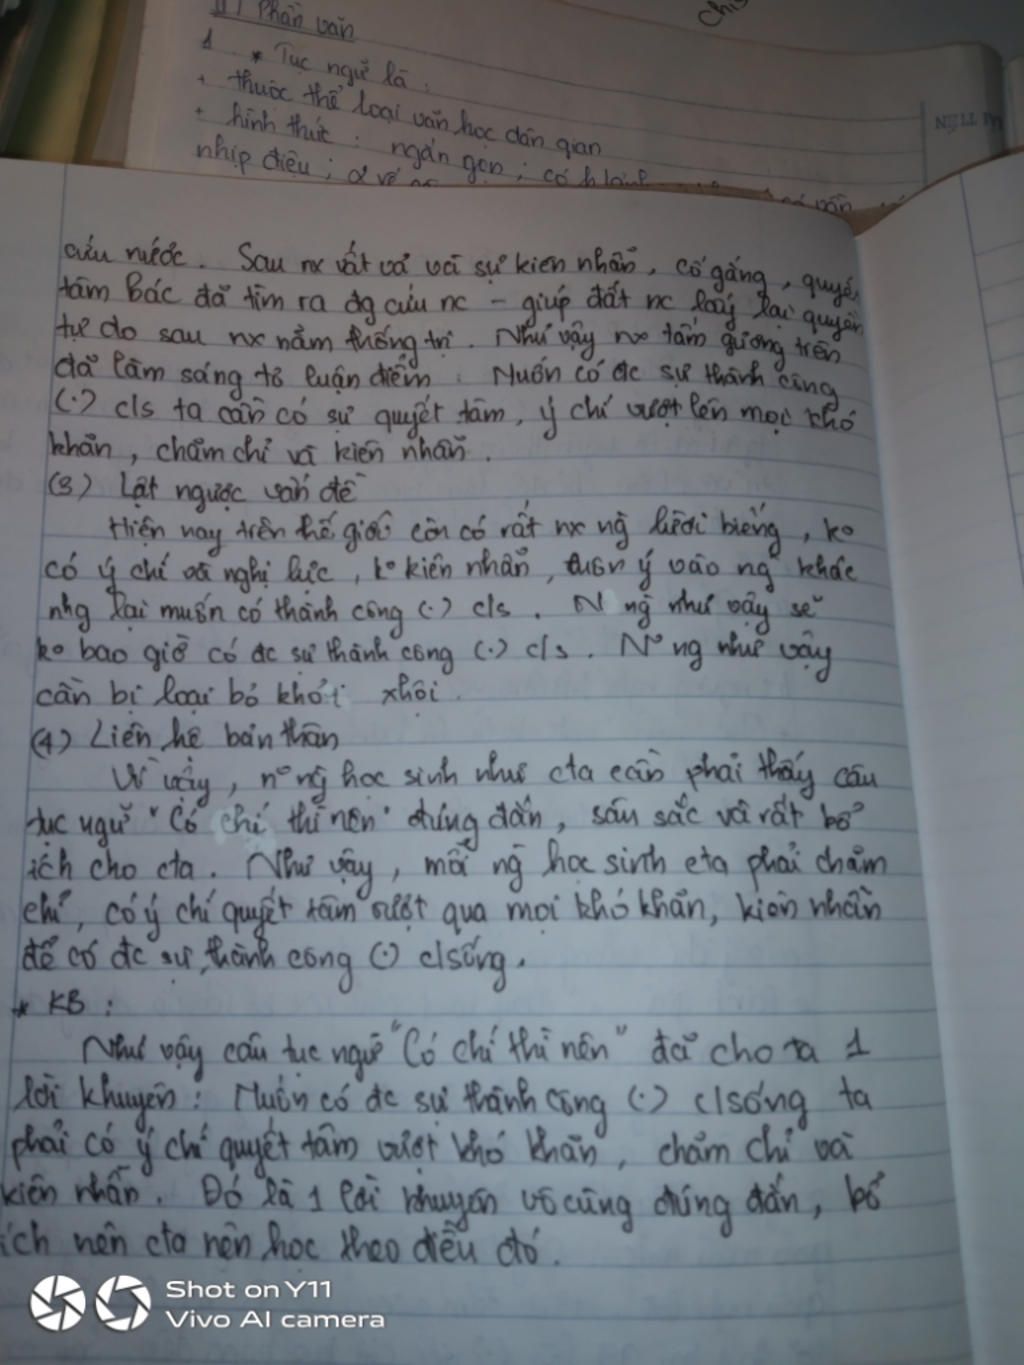 II, Phần văn
1 * Tục ngữ là :
+ thuộc thể loại văn học dân gian
+ hình thức : ngắn gọn ; có
nhịp điệu ; 2 vế
cứu nước. Sau nx vất vả và sự kiên nhẫn, cố gắng, quyết
tâm Bác đã tìm ra đg cứu nc - giúp đất nc lấy lại quyền
tự do sau nx năm thống trị. Như vậy nx tấm gương trên
đã làm sáng tỏ luận điểm : Muốn có đc sự thành công
(.) c/s ta cần có sự quyết tâm, ý chí vượt lên mọi khó
khăn, chăm chỉ và kiên nhẫn.
(3) Lật ngược vấn đề
Hiện nay trên thế giới còn có rất nx ng lười biếng, ko
có ý chí và nghị lực, ko kiên nhẫn, ý vào ng khác
nhg lại muốn có thành công (.) c/s. N ng như vậy sẽ
ko bao giờ có đc sự thành công (.) c/s. No ng như vậy
cần bị loại bỏ khỏi xhội.
(4) Liên hệ bản thân
Vì vậy, no ng học sinh như cta cần phải thấy câu
tục ngữ "Có chí thì nên" đúng đắn, sâu sắc và rất bổ
ích cho cta. Như vậy, mỗi ng học sinh cta phải chăm
chỉ, có ý chí quyết tâm vượt qua mọi khó khăn, kiên nhẫn
để có đc sự thành công (.) c/sống.
* KB :
Như vậy câu tục ngữ "Có chí thì nên" đã cho ta 1
lời khuyên : Muốn có đc sự thành công (.) c/sống ta
phải có ý chí quyết tâm vượt khó khăn, chăm chỉ và
kiên nhẫn. Đó là 1 lời khuyên vô cùng đúng đắn, bổ
ích nên cta nên học theo điều đó.
Shot on Y11
Vivo AI camera